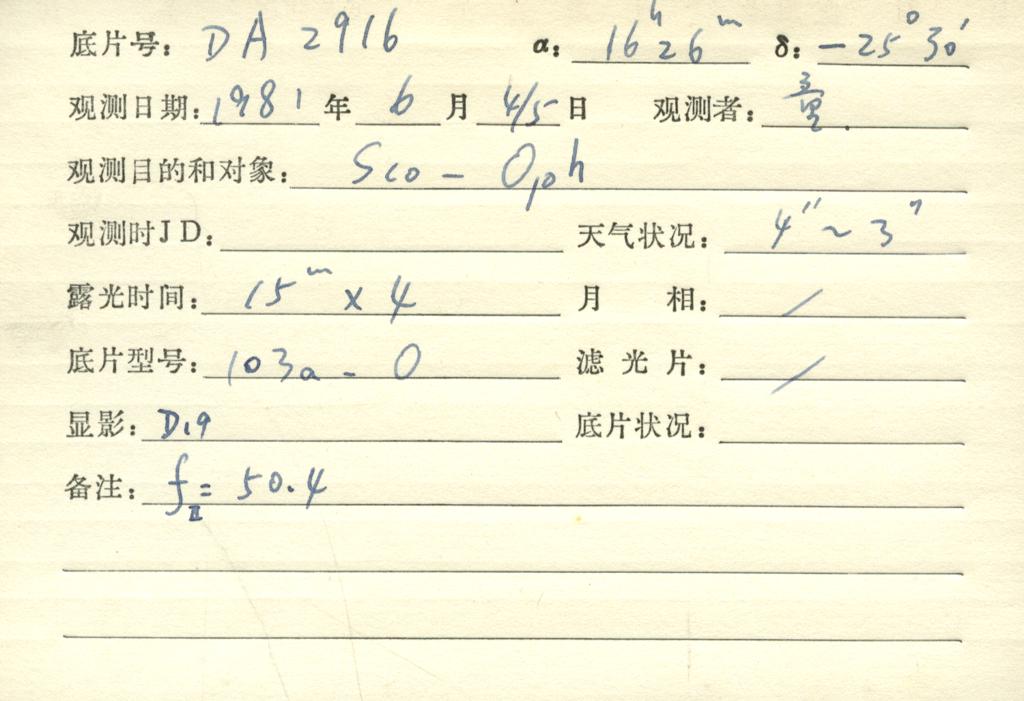 底片号: DA 2916 α: 16ʰ26ᵐ δ: -25°30′
观测日期: 1981 年 6 月 4/5 日 观测者:
观测目的和对象: Sco - Oph
观测时JD: 天气状况: 4″~3″
露光时间: 15ᵐ x 4 月 相: /
底片型号: 103a-O 滤光片: /
显影: D19 底片状况:
备注: f_II = 50.4